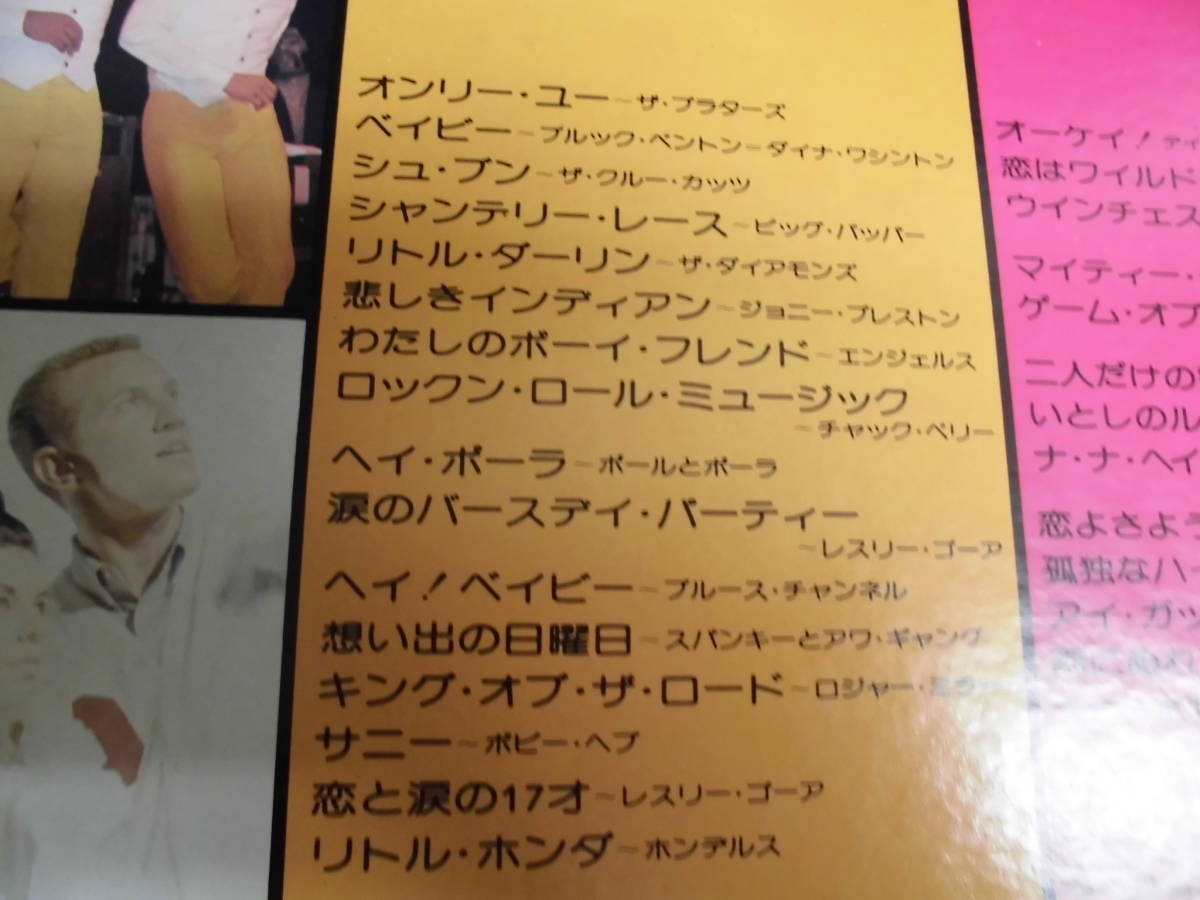 オンリー・ユー~ザ・プラターズ
ベイビー~ブルック・ベントン=ダイナ・ワシントン
シュ・ブン~ザ・クルー・カッツ
シャンテリー・レース~ビッグ・バッパー
リトル・ダーリン~ザ・ダイアモンズ
悲しきインディアン~ジョニー・プレストン
わたしのボーイ・フレンド~エンジェルス
ロックン・ロール・ミュージック
~チャック・ベリー
ヘイ・ポーラ~ポールとポーラ
涙のバースデイ・パーティー
~レスリー・ゴーア
ヘイ!ベイビー~ブルース・チャンネル
想い出の日曜日~スパンキーとアワ・ギャング
キング・オブ・ザ・ロード~ロジャー・ミラー
サニー~ボビー・ヘブ
恋と涙の17才~レスリー・ゴーア
リトル・ホンダ~ホンデルス
オーケイ!ディ
恋はワイルド
ウインチェス
マイティー・
ゲーム・オブ
二人だけの
いとしのル
ナ・ナ・ヘイ
恋よさよう
孤独なハー
アイ・ガッ